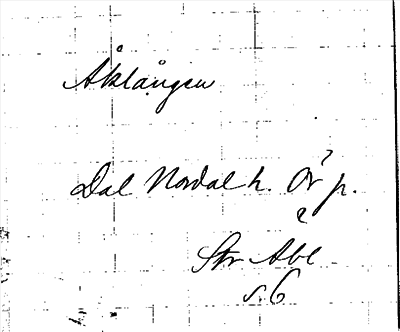 Åklången
Dal Nordal h. Ör p.
Abl
s. 6